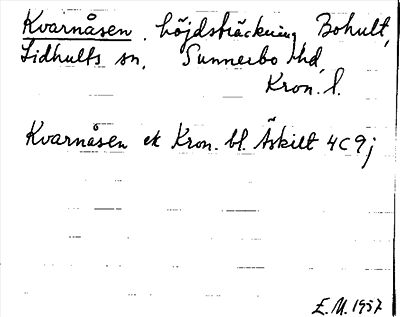 Kvarnåsen, höjdsträckning Bohult,
Lidhults sn, Sunnerbo hd,
Kron. l.
Kvarnåsen ek Kron. bl. Äskilt 4C9j
E.M. 1957